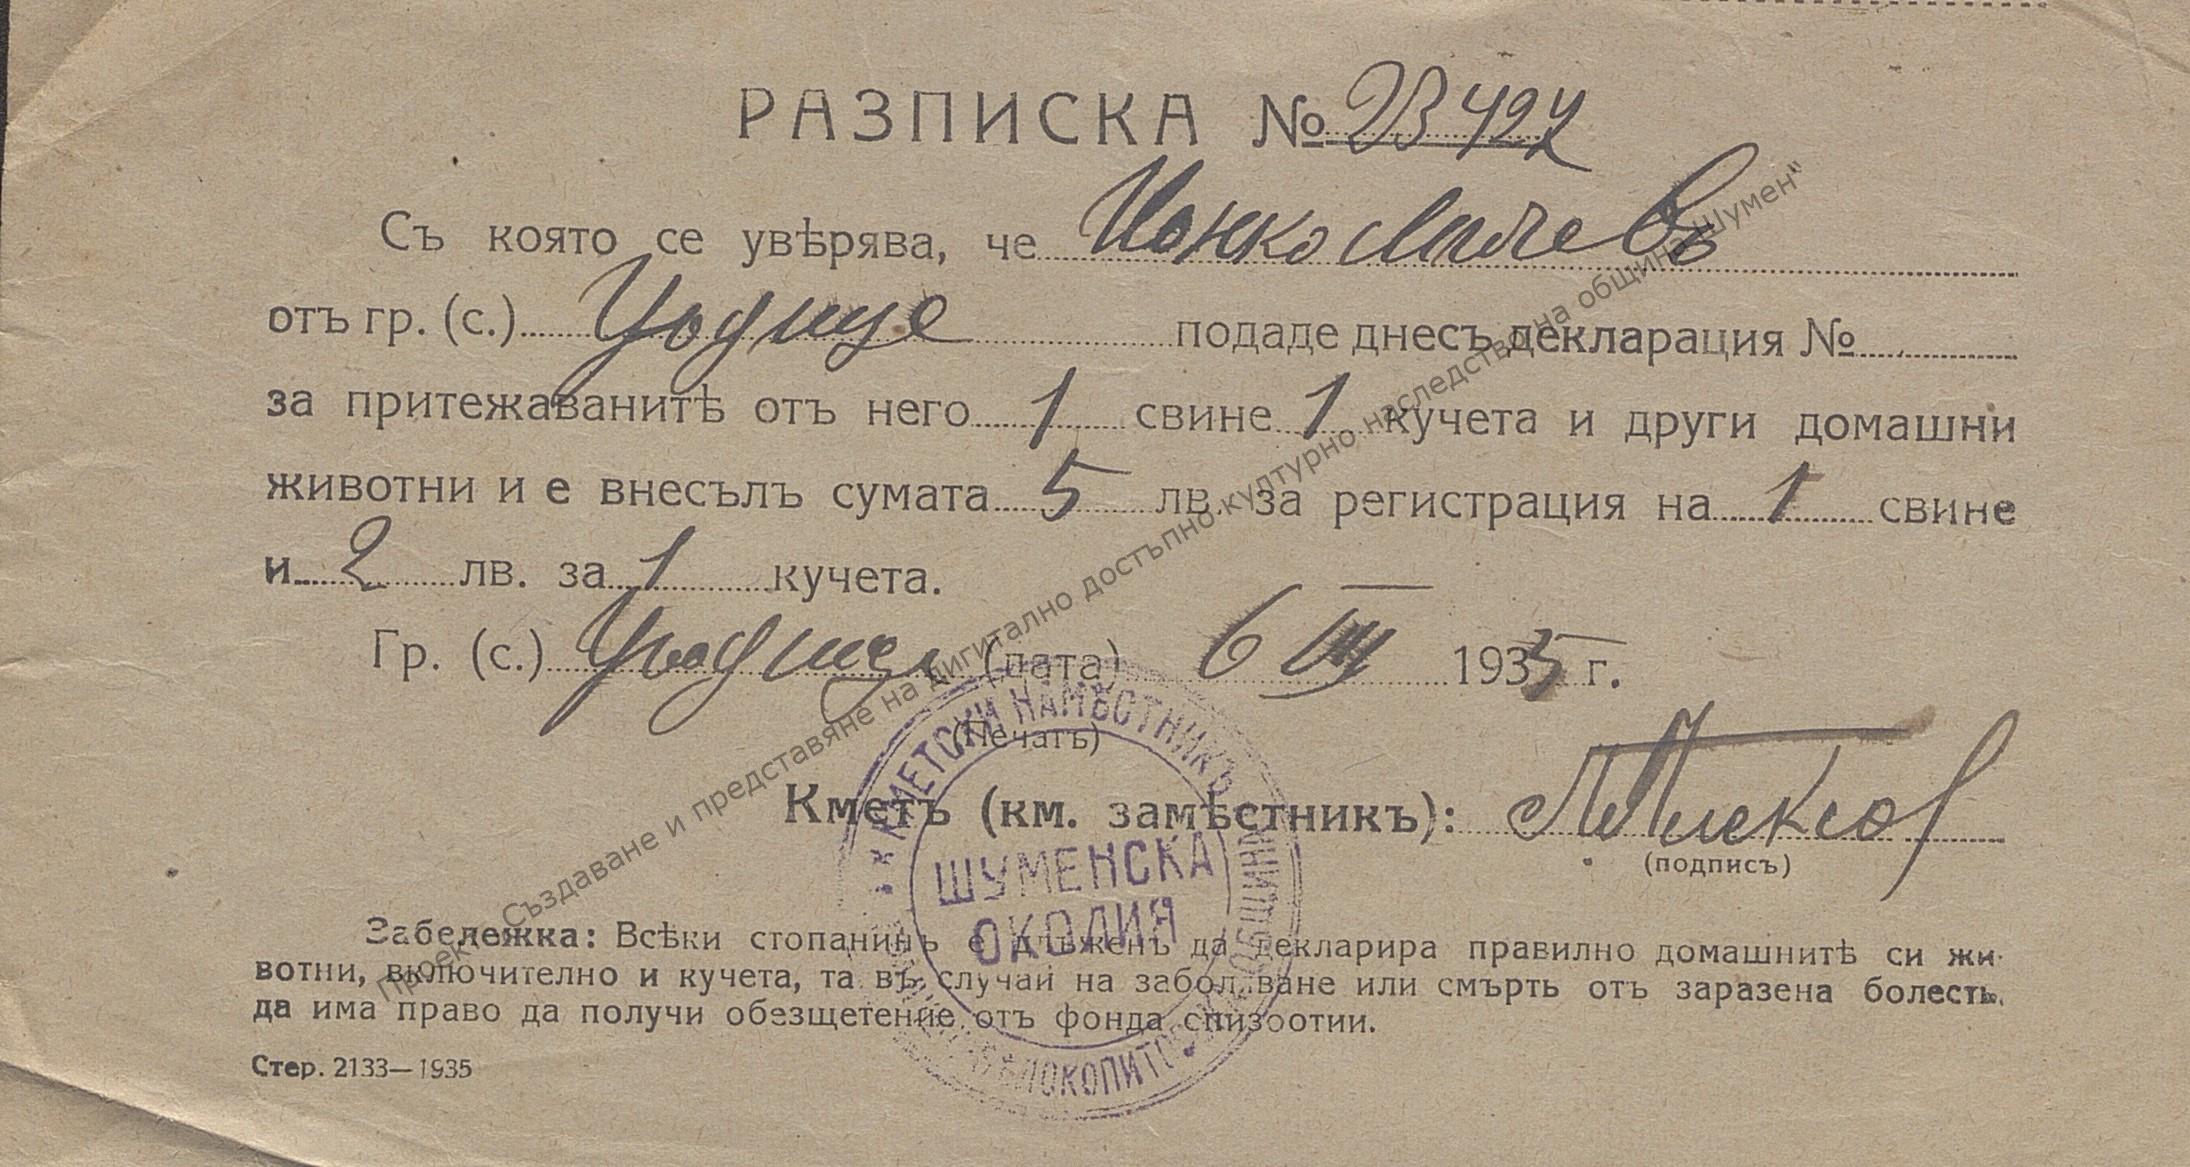 РАЗПИСКА №
Съ която се увѣрява, че Йонко
отъ гр. (с.) Градище подаде днесъ декларация №
за притежаванитѣ отъ него 1 свине 1 кучета и други домашни
животни и е внесълъ сумата 5 лв. за регистрация на 1 свине
и 2 лв. за 1 кучета.
Гр. (с.) Градище (дата) 6 1935 г.
(Печатъ)
Кметъ (км. замѣстникъ):
(подписъ)
КМЕТСКИ НАМѢСТНИКЪ
ШУМЕНСКА
ОКОЛИЯ
Забележка: Всѣки стопанинъ е длъженъ да декларира правилно домашнитѣ си жи-
вотни, включително и кучета, та въ случай на заболѣване или смърть отъ заразена болесть,
да има право да получи обезщетение отъ фонда епизоотии.
Стер. 2133—1935
Проект „Създаване и представяне на дигитално достъпно културно наследство на община Шумен“